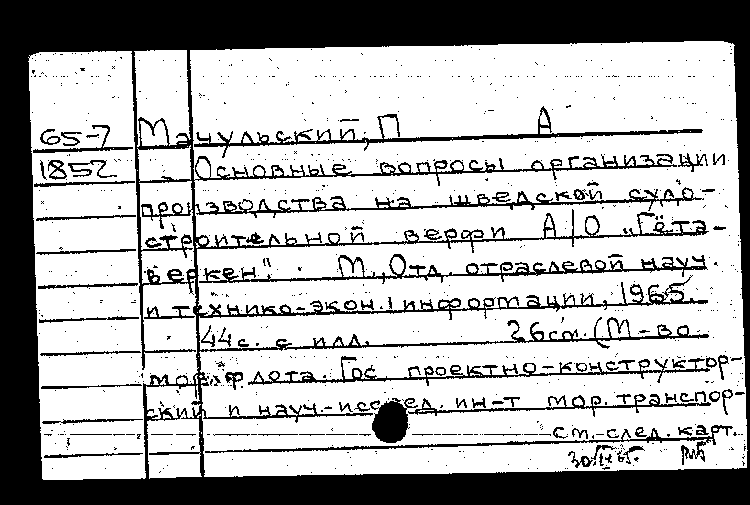 65-7 Мачульский, П А
1852 Основные вопросы организации
производства на шведской судо-
строительной верфи А/О „Гёта-
веркен". М., Отд. отраслевой науч.
и технико-экон. информации, 1965.
44с. с илл. 26см. (М-во
морфлота. Гос проектно-конструктор-
ский и науч.-исслед. ин-т мор. транспор-
см. след. карт.